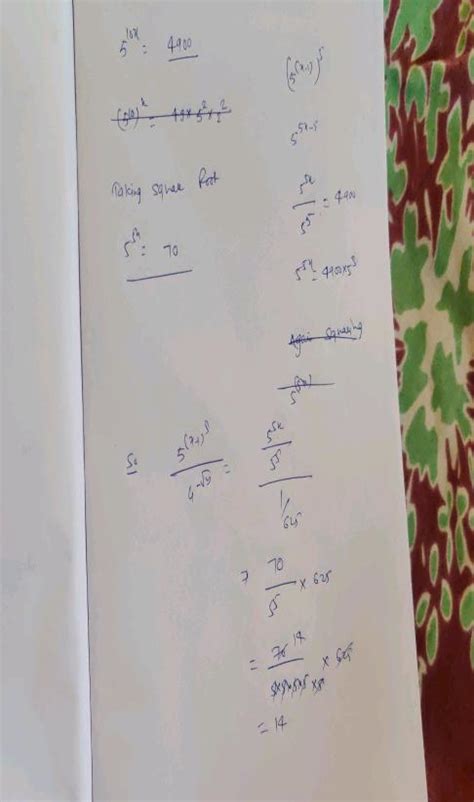 5^{10x} = 4900
(5^{10})^x = 49 × 5^2 × 2^2
Taking Square Root
5^{5x} = 70
(5^{(x-1)})^5
5^{5x-5}
5^{5x} / 5^5 = 4900
5^{5x} = 4900 × 5^5
Again Squaring
So
= (5^{5x} / 5^5) / (1/625)
70 / 5^5 × 625
= 70 14 / 5×5×5×5×5 × 625
= 14